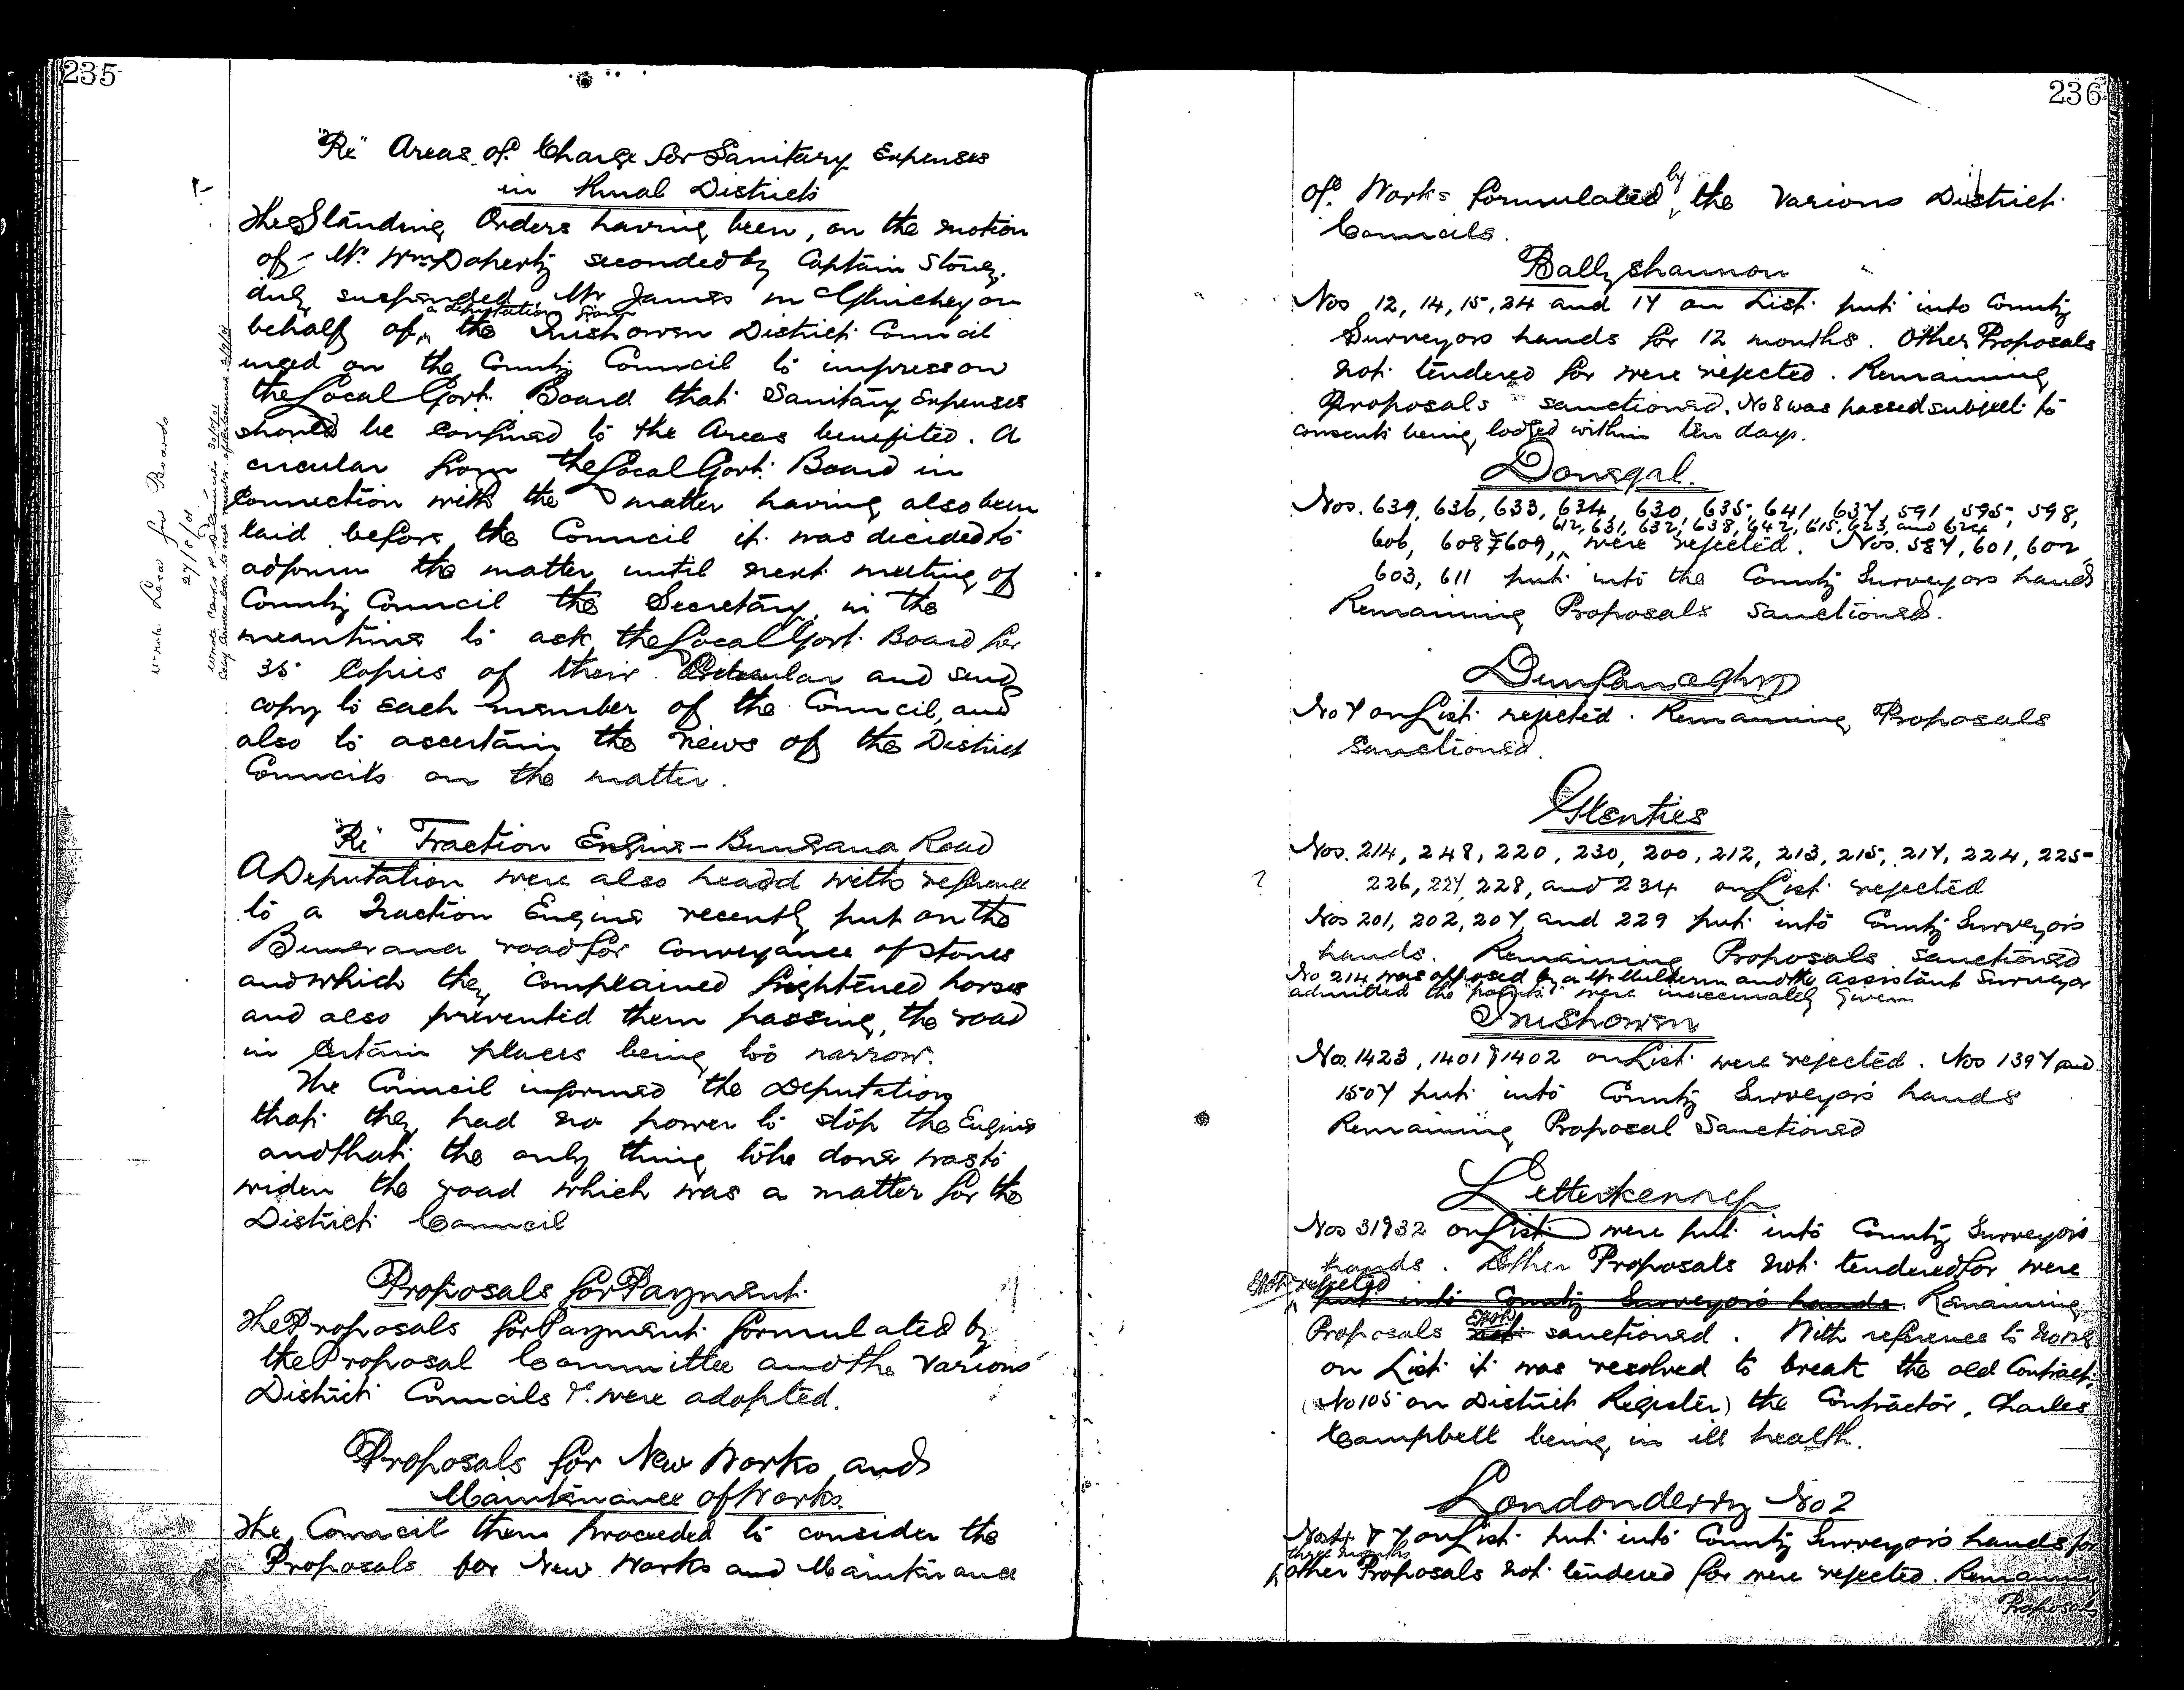 235
"Re" Areas of Charge for Sanitary Expenses
in Rural Districts
The Standing Orders having been, on the motion
of Mr. Wm Doherty seconded by Captain Stoney,
duly suspended, Mr James McGlinchey on
behalf of a deputation from the Inishowen District Council
urged on the County Council to impress on
the Local Govt. Board that Sanitary Expenses
should be confined to the Areas benefited. A
circular from the Local Govt. Board in
connection with the matter having also been
laid before the Council it was decided to
adjourn the matter until next meeting of
County Council the Secretary in the
meantime to ask the Local Govt. Board for
35 Copies of their Circular and send
copy to each member of the Council, and
also to ascertain the views of the District
Councils on the matter.
wrote Local Boards
27/5/01
"Re" Traction Engine - Buncrana Road
A Deputation were also heard with reference
to a Traction Engine recently put on the
Buncrana road for conveyance of stones
and which they complained frightened horses
and also prevented them passing, the road
in certain places being too narrow.
The Council informed the Deputation
that they had no power to stop the Engine
and that the only thing to be done was to
widen the road which was a matter for the
District Council
Proposals for Payment.
The Proposals for Payment formulated by
the Proposal Committee and the various
District Councils &c. were adopted.
Proposals for New Works and
Maintenance of Works.
The Council then proceeded to consider the
Proposals for New Works and Maintenance
236
of Works formulated by the various District
Councils.
Ballyshannon
Nos 12, 14, 15, 24 and 17 on List put into County
Surveyors hands for 12 months. Other Proposals
not tendered for were rejected. Remaining
Proposals sanctioned. No 8 was passed subject to
consents being lodged within ten days.
Donegal.
Nos. 639, 636, 633, 634, 630, 635, 641, 637, 591, 595, 598,
606, 608 & 609, 612, 631, 632, 638, 642, 615, 623, and 624 were rejected. Nos. 587, 601, 602,
603, 611 put into the County Surveyors hands
Remaining Proposals sanctioned.
Dunfanaghy
No 7 on List rejected. Remaining Proposals
sanctioned.
Glenties
Nos. 214, 248, 220, 230, 200, 212, 213, 215, 217, 224, 225
?
226, 227, 228, and 234 on List rejected
Nos 201, 202, 207, and 229 put into County Surveyors
hands. Remaining Proposals sanctioned
No 214 was opposed by a Mr Mulhern and the Assistant Surveyor
admitted the "points" were inaccurately given
Inishowen
Nos. 1423, 1401 & 1402 on List were rejected. Nos 1397 and
1507 put into County Surveyors hands
Remaining Proposal Sanctioned
Letterkenny
Nos 31 & 32 on List were put into County Surveyors
hands. Other Proposals not tendered for were
rejected
put into County Surveyors hands. Remaining
Proposals not sanctioned. With reference to No
on List it was resolved to break the old Contract,
(No 105 on District Register) the Contractor, Charles
Campbell being in ill health.
Londonderry No 2
& 7 on List put into County Surveyors hands for
three months
other Proposals not tendered for were rejected. Remaining
Proposals